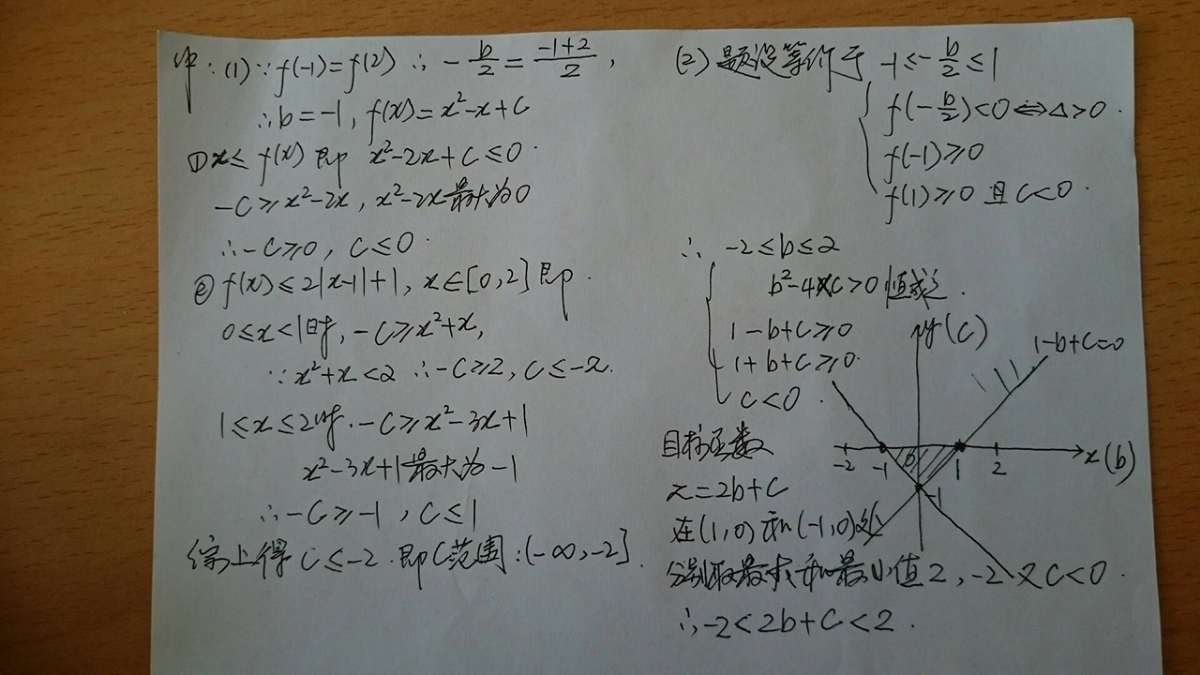 (1) ∵ f(-1)=f(2) ∴ -b/2 = (-1+2)/2,
∴ b=-1, f(x)=x²-x+c
① x≤f(x) 即 x²-2x+c≤0.
-c≥x²-2x, x²-2x最大为0
∴ -c≥0, c≤0.
② f(x)≤2|x-1|+1, x∈[0,2] 即.
0≤x<1时, -c≥x²+x,
∵ x²+x<2 ∴ -c≥2, c≤-2.
1≤x≤2时. -c≥x²-3x+1
x²-3x+1最大为-1
∴ -c≥-1, c≤1
综上得 c≤-2. 即c范围: (-∞, -2].
(2) 题设等价于 -1≤-b/2≤1
f(-b/2)<0 ⇔ Δ>0.
f(-1)≥0
f(1)≥0 且 c<0.
∴ -2≤b≤2
b²-4xc>0 恒成立.
1-b+c≥0
1+b+c≥0.
c<0.
y(c)
1-b+c=0
-2 -1 0 1 2 x(b)
-1
目标函数
z=2b+c
在(1,0)和(-1,0)处
分别取最大和最小值2, -2 又c<0.
∴ -2<2b+c<2.